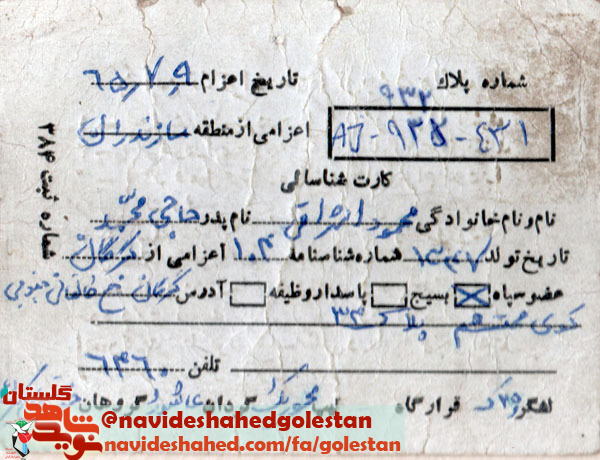 شماره پلاك ۹۳۲
تاریخ اعزام ۶۵/۷/۹
AJ-۹۳۲-۴۳۱
اعزامی از منطقه مازندران
کارت شناسائی
نام و نام خانوادگی محمود اشراقی نام پدر حاجی محمد
تاریخ تولد ۱۳۴۷ شماره شناسنامه ۱۰۴ اعزامی از گرگان
عضو سپاه بسیج پاسدار وظیفه آدرس گرگان
کوی هشتم پلاک ۳۳
تلفن ۶۴۶۰
لشگر ۲۵ ک قرارگاه گردان گروهان
شماره ثبت ۳۸۴
نوید شاهد گلستان
@navideshahedgolestan
navideshahed.com/fa/golestan